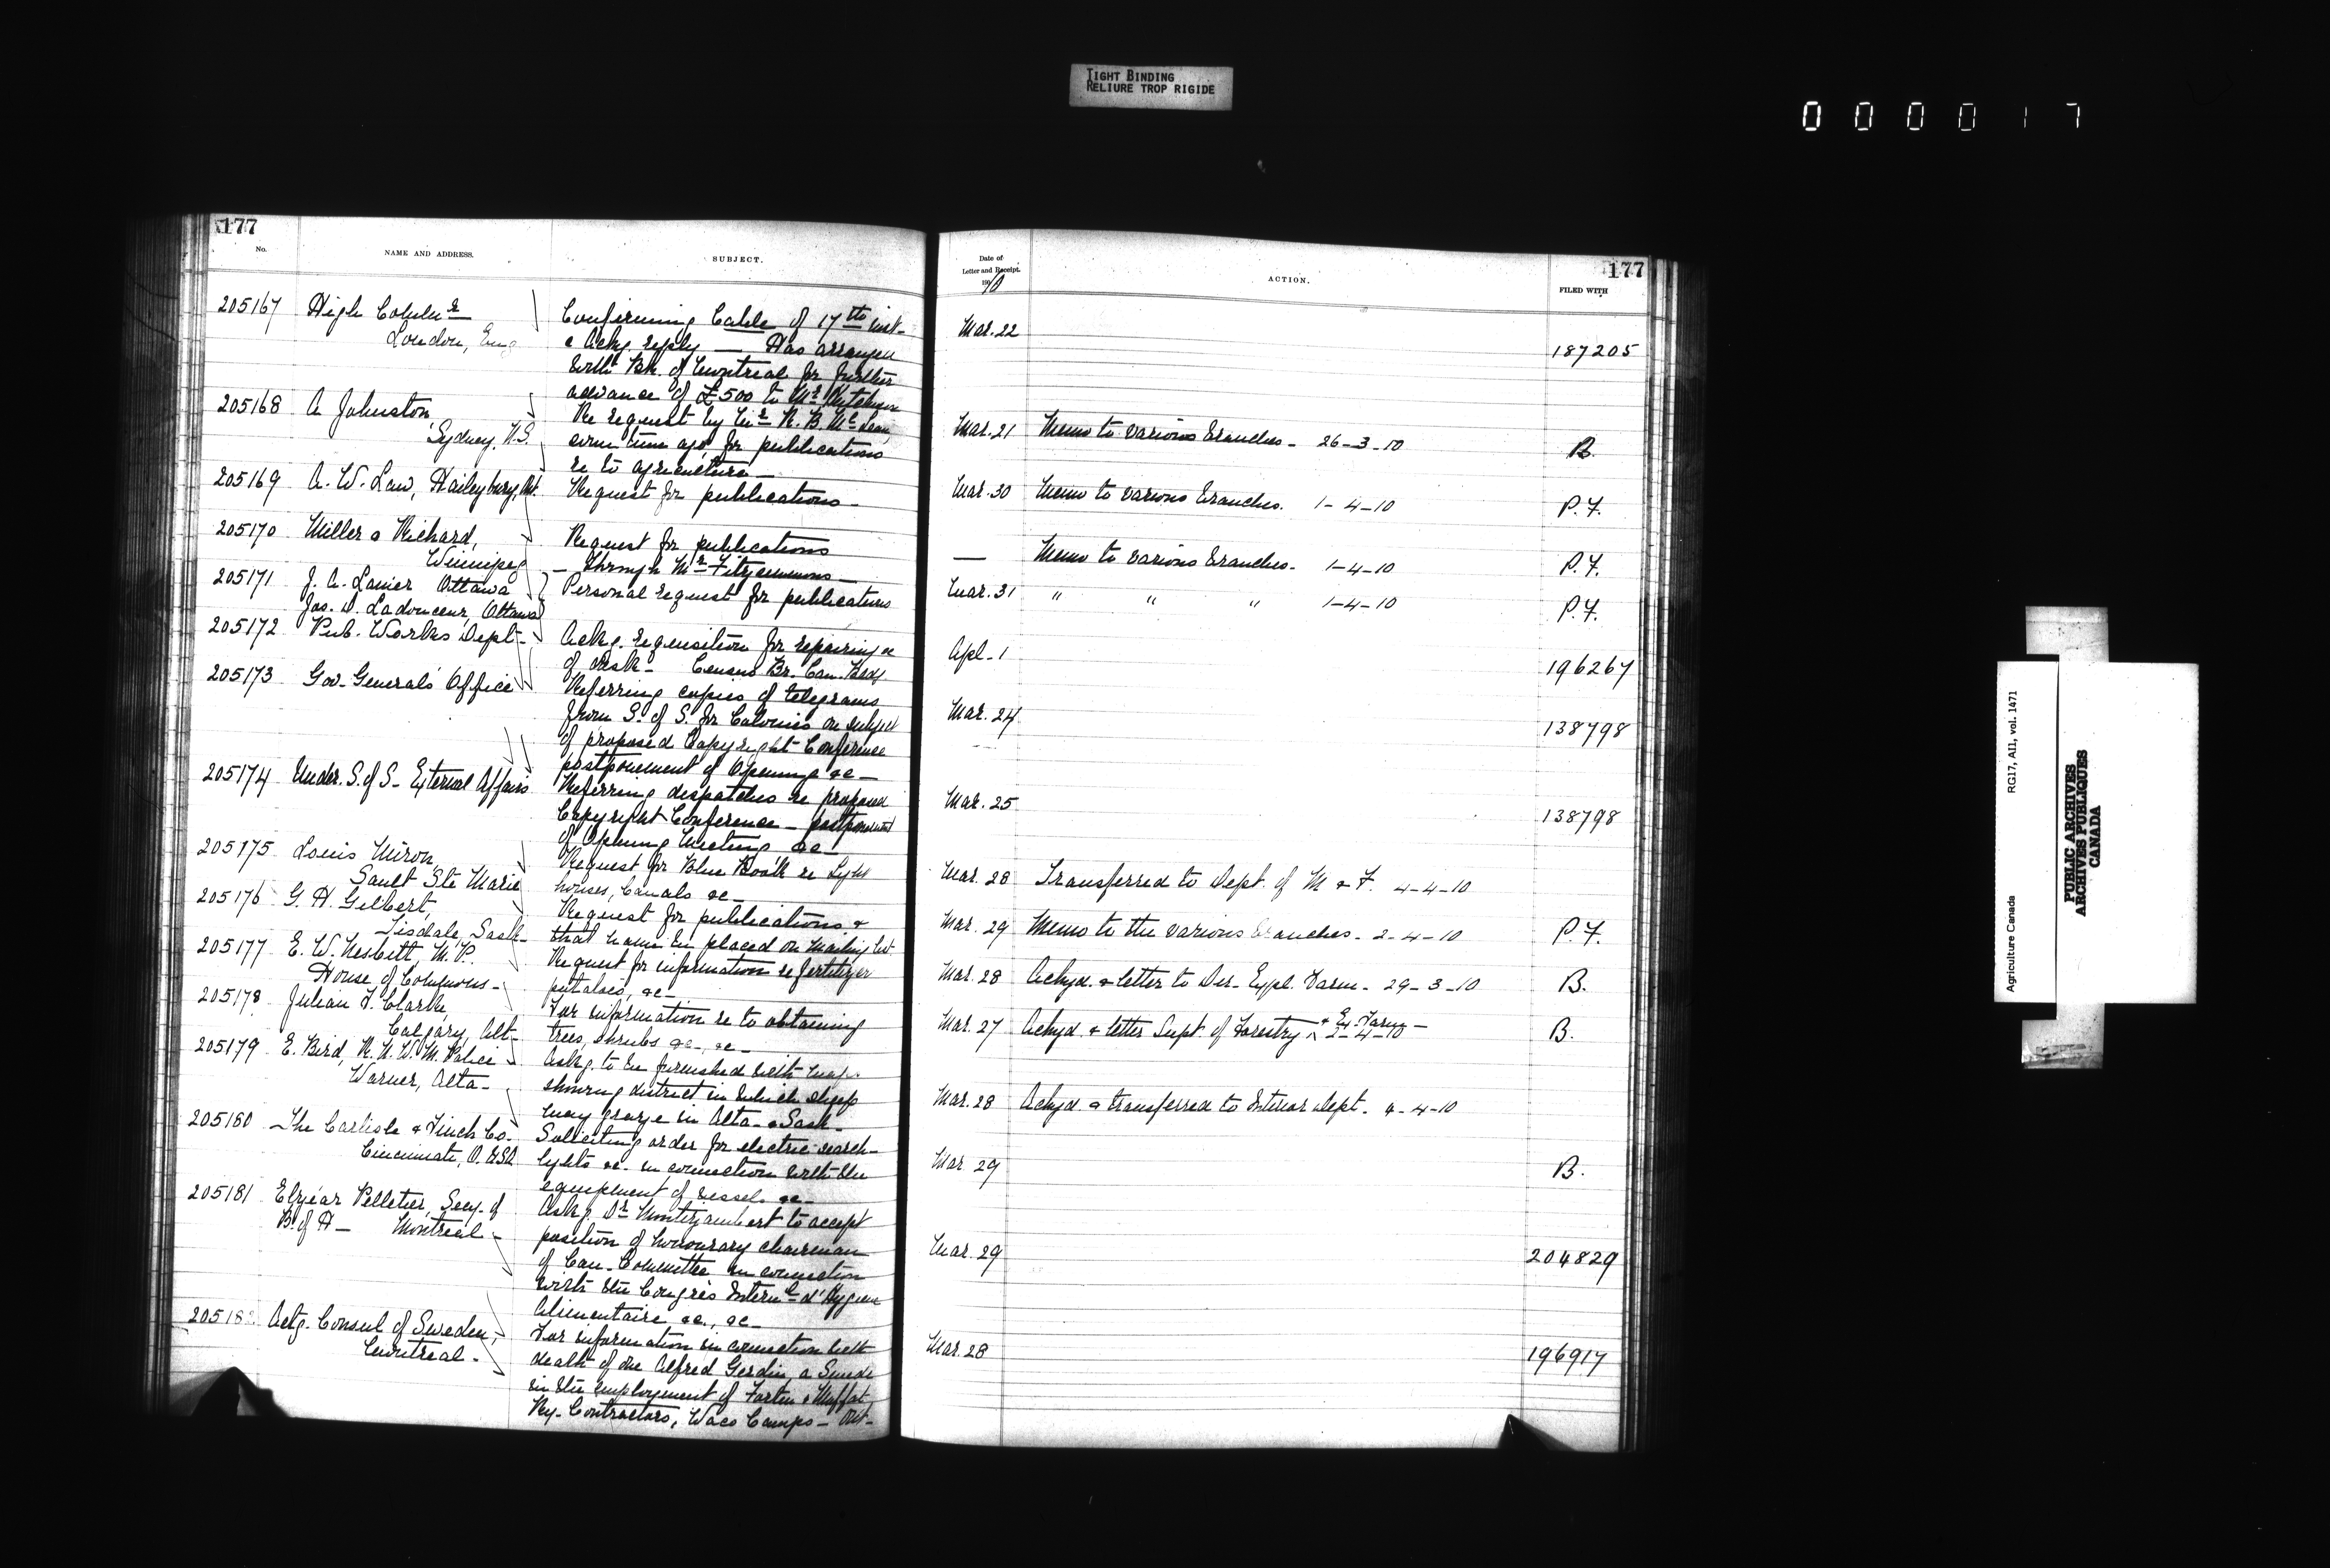 TIGHT BINDING
RELIURE TROP RIGIDE
000017
177
No.
NAME AND ADDRESS.
SUBJECT.
205167 High Commr
London, Eng
Confirming Cable of 17th inst-
& Ackg. reply — Has arranged
with Bk. of Montreal for further
advance of £500 to Mr
205168 A Johnston,
Sydney, N.S.
Re request by Mr R. B. Mc
some time ago, for publications
re to agriculture —
205169 A. W. Law, Haileybury, Ont.
Request for publications —
205170 Miller & Richard,
Winnipeg
Request for publications
— Through Mr Fitzsimmons —
205171 J. A. Lanier Ottawa
Jas. D. Ladouceur, Ottawa
Personal request for publications
205172 Pub. Works Dept-
Ackg. requisition for repairing &c
of desk - Census Br. Can.
205173 Gov. General's Office
Referring copies of telegrams
from S. of S. for Colonies on subject
of proposed Copyright Conference
postponement of Opening &c —
205174 Under. S. of S- External Affairs
Referring despatches re proposed
Copyright Conference — postponement
of Opening Meeting &c —
205175 Louis Miron,
Sault Ste Marie
Request for Blue Book re Light
houses, Canals &c —
205176 G. H. Gilbert,
Tisdale, Sask-
Request for publications &
that name be placed on mailing list
205177 E. W. Nesbitt, M.P.
House of Commons-
Request for information re fertilizer
potatoes, &c —
205178 Julian T. Clarke,
Calgary, Alt-
For information re to obtaining
trees, shrubs &c-, &c —
205179 E. Bird, R. N. W. M. Police
Warner, Alta-
Askg. to be furnished with map
showing district in which sheep
may graze in Alta- & Sask-
205180 The Carlisle & Finch Co.
Cincinnati, O. USA
Soliciting order for electric search-
lights &c. in connection with the
equipment of vessels &c —
205181 Elzéar Pelletier, Secy. of
B. of H — Montreal -
Askg. Dr Montizambert to accept
position of honourary chairman
of Can- Committee in connection
with the Congrès Internl d'Hygiene
Alimentaire &c., &c —
20518 Actg. Consul of Sweden,
Montreal -
For information in connection with
death of one Alfred Gerdin, a Swede
in the employment of & Moffat
Ry- Contractors, Waco Camps - Ont-
177
Date of
Letter and Receipt.
190 10
ACTION.
FILED WITH
Mar. 22 187205
Mar. 21 Memo to various branches - 26-3-10 B.
Mar. 30 Memo to various branches. 1-4-10 P.F.
— Memo to various branches - 1-4-10 P.F.
Mar. 31 " " " 1-4-10 P.F.
Apl. 1 196267
Mar. 24 138798
Mar. 25 138798
Mar. 28 Transferred to Dept. of M & F. 4-4-10
Mar. 29 Memo to the various branches - 2-4-10 P.F.
Mar. 28 Ackgd. & letter to Dir- Expl. Farm - 29-3-10 B.
Mar. 27 Ackgd. & letter Supt. of Forestry & Ex. Farm - 2-4-10 B.
Mar. 28 Ackgd. & transferred to Interior Dept. 4-4-10
Mar. 29 B.
Mar. 29 204829
Mar. 28 196917
Agriculture Canada
RG17, AII, vol. 1471
PUBLIC ARCHIVES
ARCHIVES PUBLIQUES
CANADA